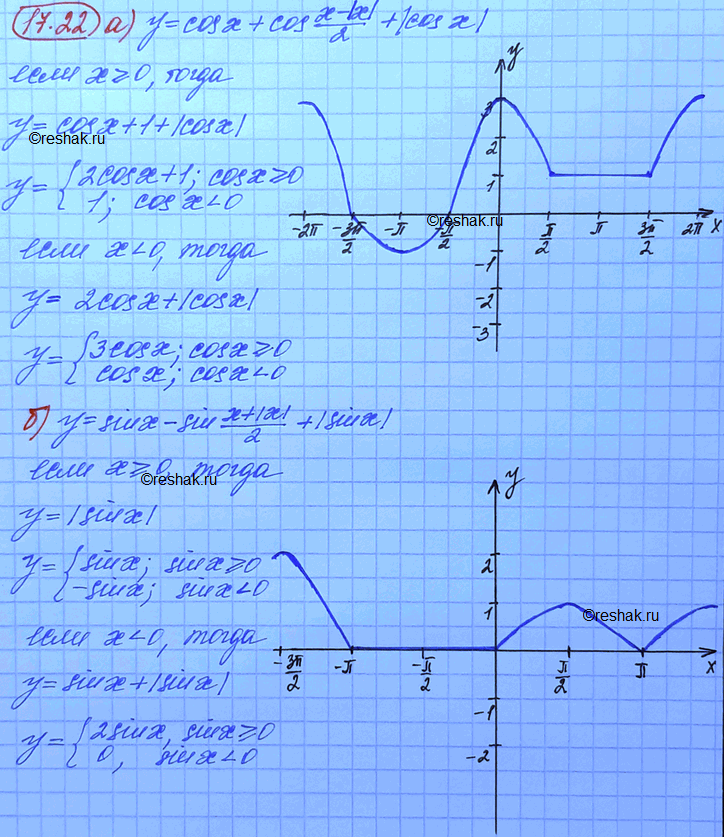 17.22 а) y = cos x + cos (x-|x|)/2 + |cos x|
если x ≥ 0, тогда
y = cos x + 1 + |cos x|
©reshak.ru
y = { 2cos x + 1; cos x ≥ 0
1; cos x < 0
если x < 0, тогда
y = 2cos x + |cos x|
y = { 3cos x; cos x ≥ 0
cos x; cos x < 0
y
3
2
1
-2π -3π/2 -π -π/2 π/2 π 3π/2 2π x
©reshak.ru
-1
-2
-3
б) y = sin x - sin (x+|x|)/2 + |sin x|
если x ≥ 0, тогда
©reshak.ru
y = |sin x|
y = { sin x; sin x ≥ 0
-sin x; sin x < 0
если x < 0, тогда
y = sin x + |sin x|
y = { 2sin x, sin x ≥ 0
0, sin x < 0
y
2
1
©reshak.ru
-3π/2 -π -π/2 π/2 π x
-1
-2